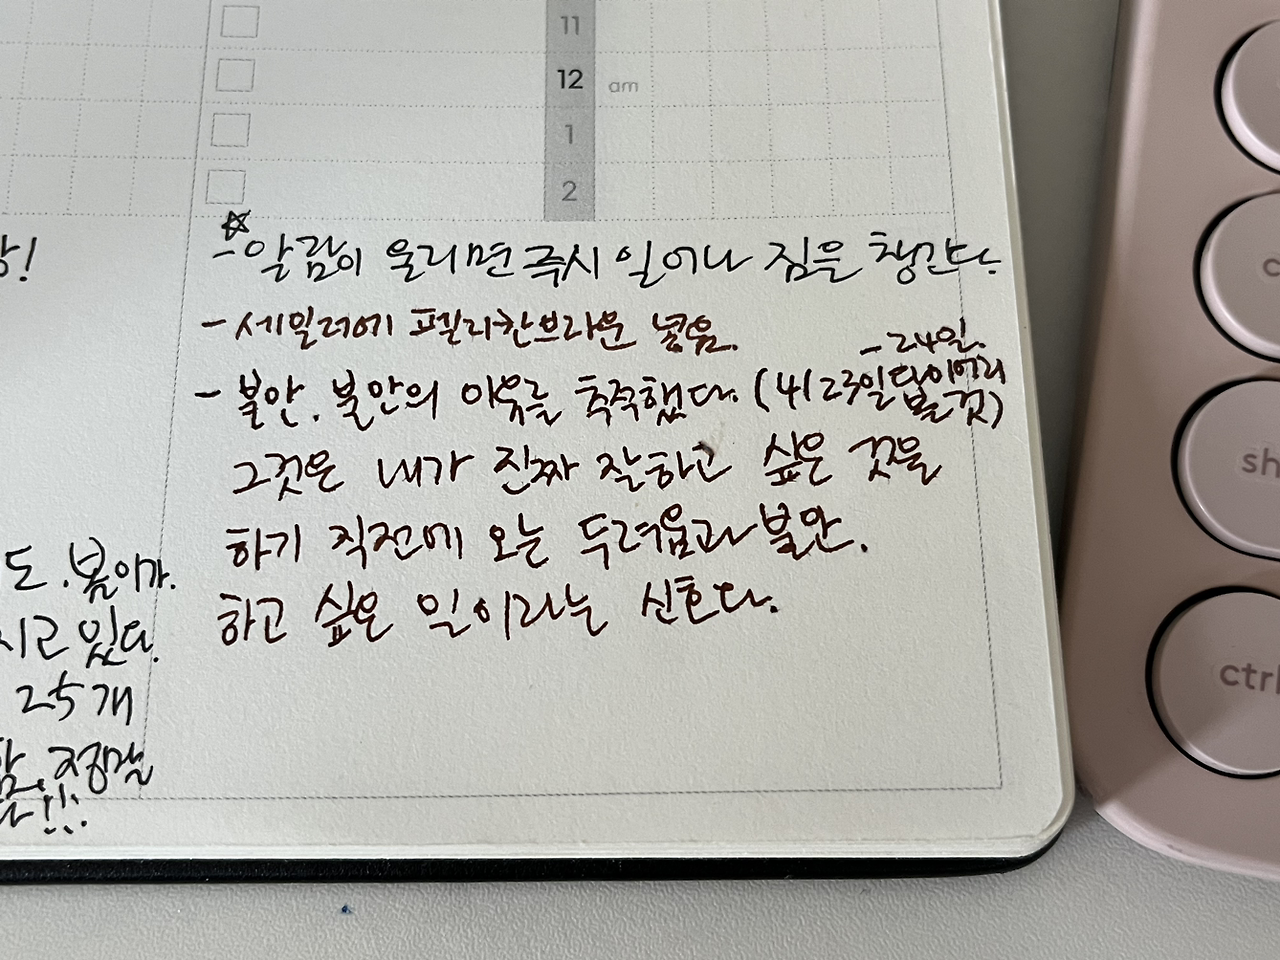 11
12 am
1
2
☆
- 알람이 울리면 즉시 일어나 짐을 챙긴다.
- 세일러에 펠리칸브라운 넣음.
- 24일.
- 불안. 불안의 이유를 추측했다. (4/23일 다이어리
볼 것)
그것은 내가 진짜 잘하고 싶은 것을
하기 직전에 오는 두려움과 불안.
하고 싶은 일이라는 신호다.
!
도. 봄이가.
시고 있다.
25개
정말
다!!!
c
sh
ctrl